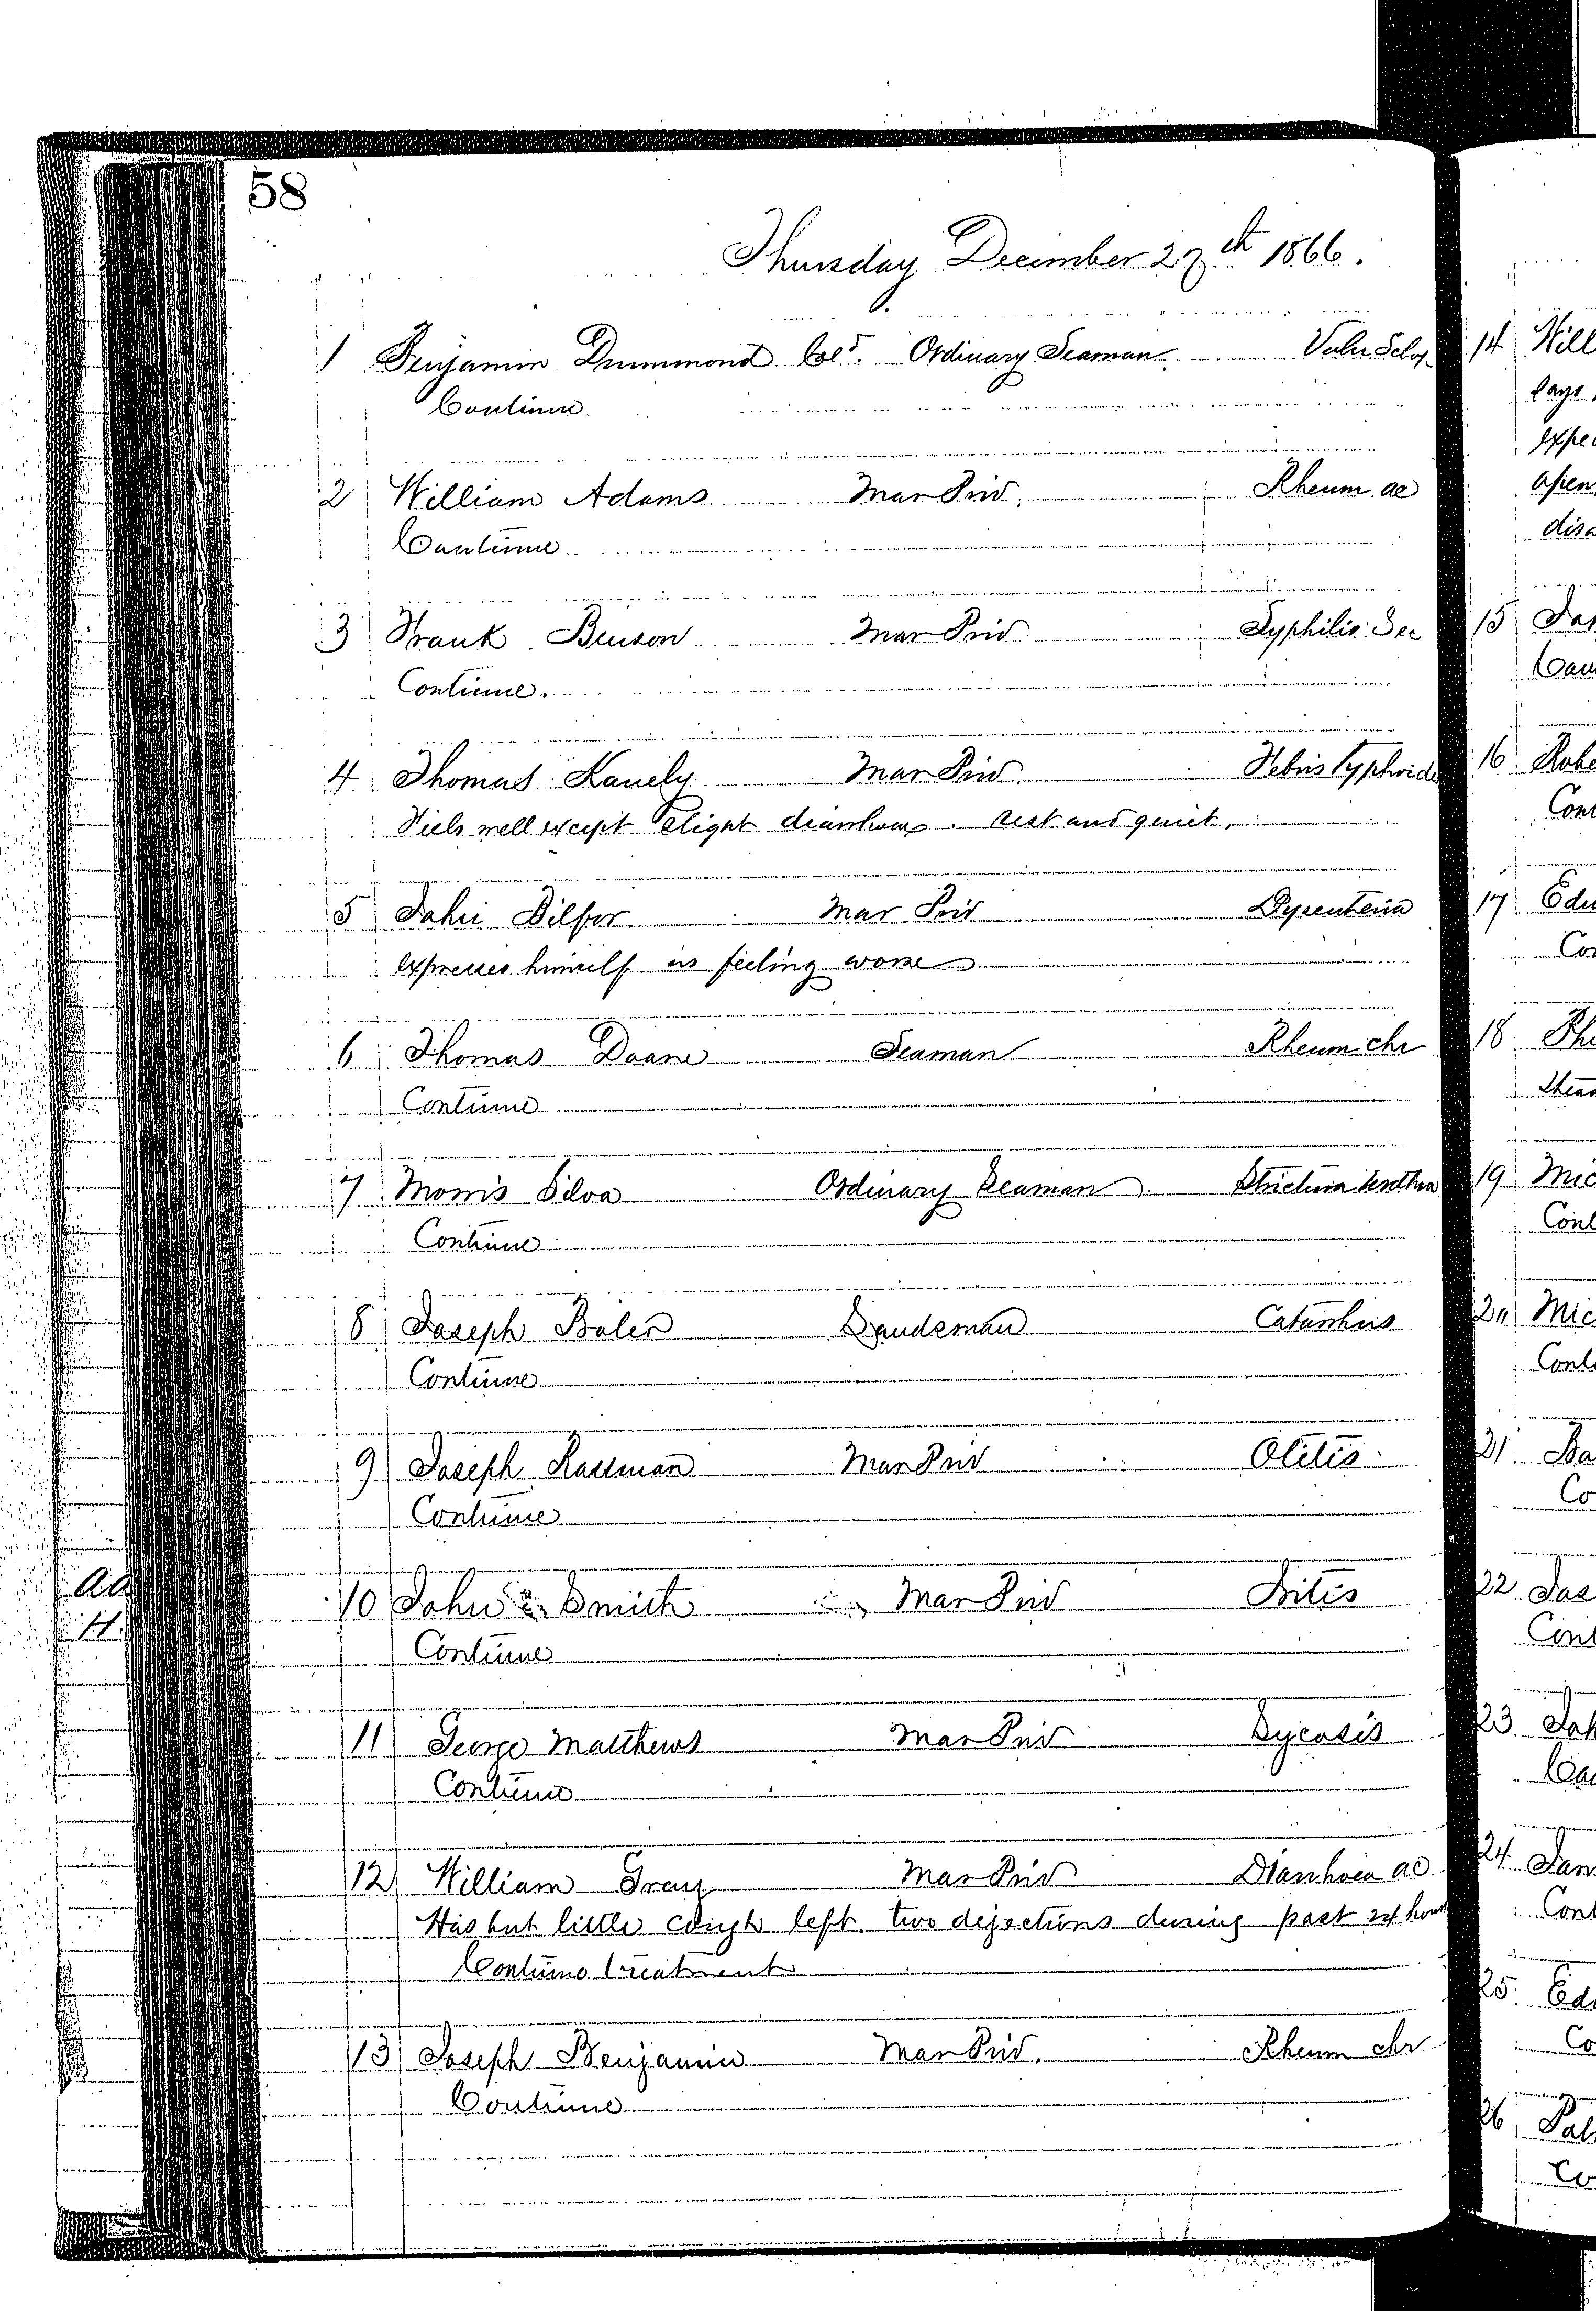 58
Thursday December 27th 1866.
1 Benjamin Drummond Cold. Ordinary Seaman Vuln Sclop
Continue
2 William Adams Mar Priv. Rheum ac
Continue
3 Frank Benson Mar Priv Syphilis Sec
Continue.
4 Thomas Kanely Mar Priv. Febris Typhoides
Feels well except slight diarrhoea. rest and quiet.
5 John Mar Priv Dysenteria
expresses himself as feeling worse
6 Thomas Doane Seaman Rheum chr
Continue
7 Morris Silva Ordinary Seaman Strictura Urethra
Continue
8 Joseph Landsman Catarrhus
Continue
9 Joseph Mar Priv Otitis
Continue
10 John Smith Mar Priv Iritis
Continue
11 George Matthews Mar Priv Sycosis
Continue
12 William Gray Mar Priv Diarrhoea ac
Has but little cough left. two dejections during past 24 hours
Continue treatment
13 Joseph Benjamin Mar Priv. Rheum chr
Continue
14 Will
15
16 Robe
Cont
17 Edw
Co
18
19 Mic
Cont
20 Mic
Cont
21 Ba
Co
22 Jas
Cont
23 Joh
24 Jam
Cont
25 Ed
Co
26 Pat
Co